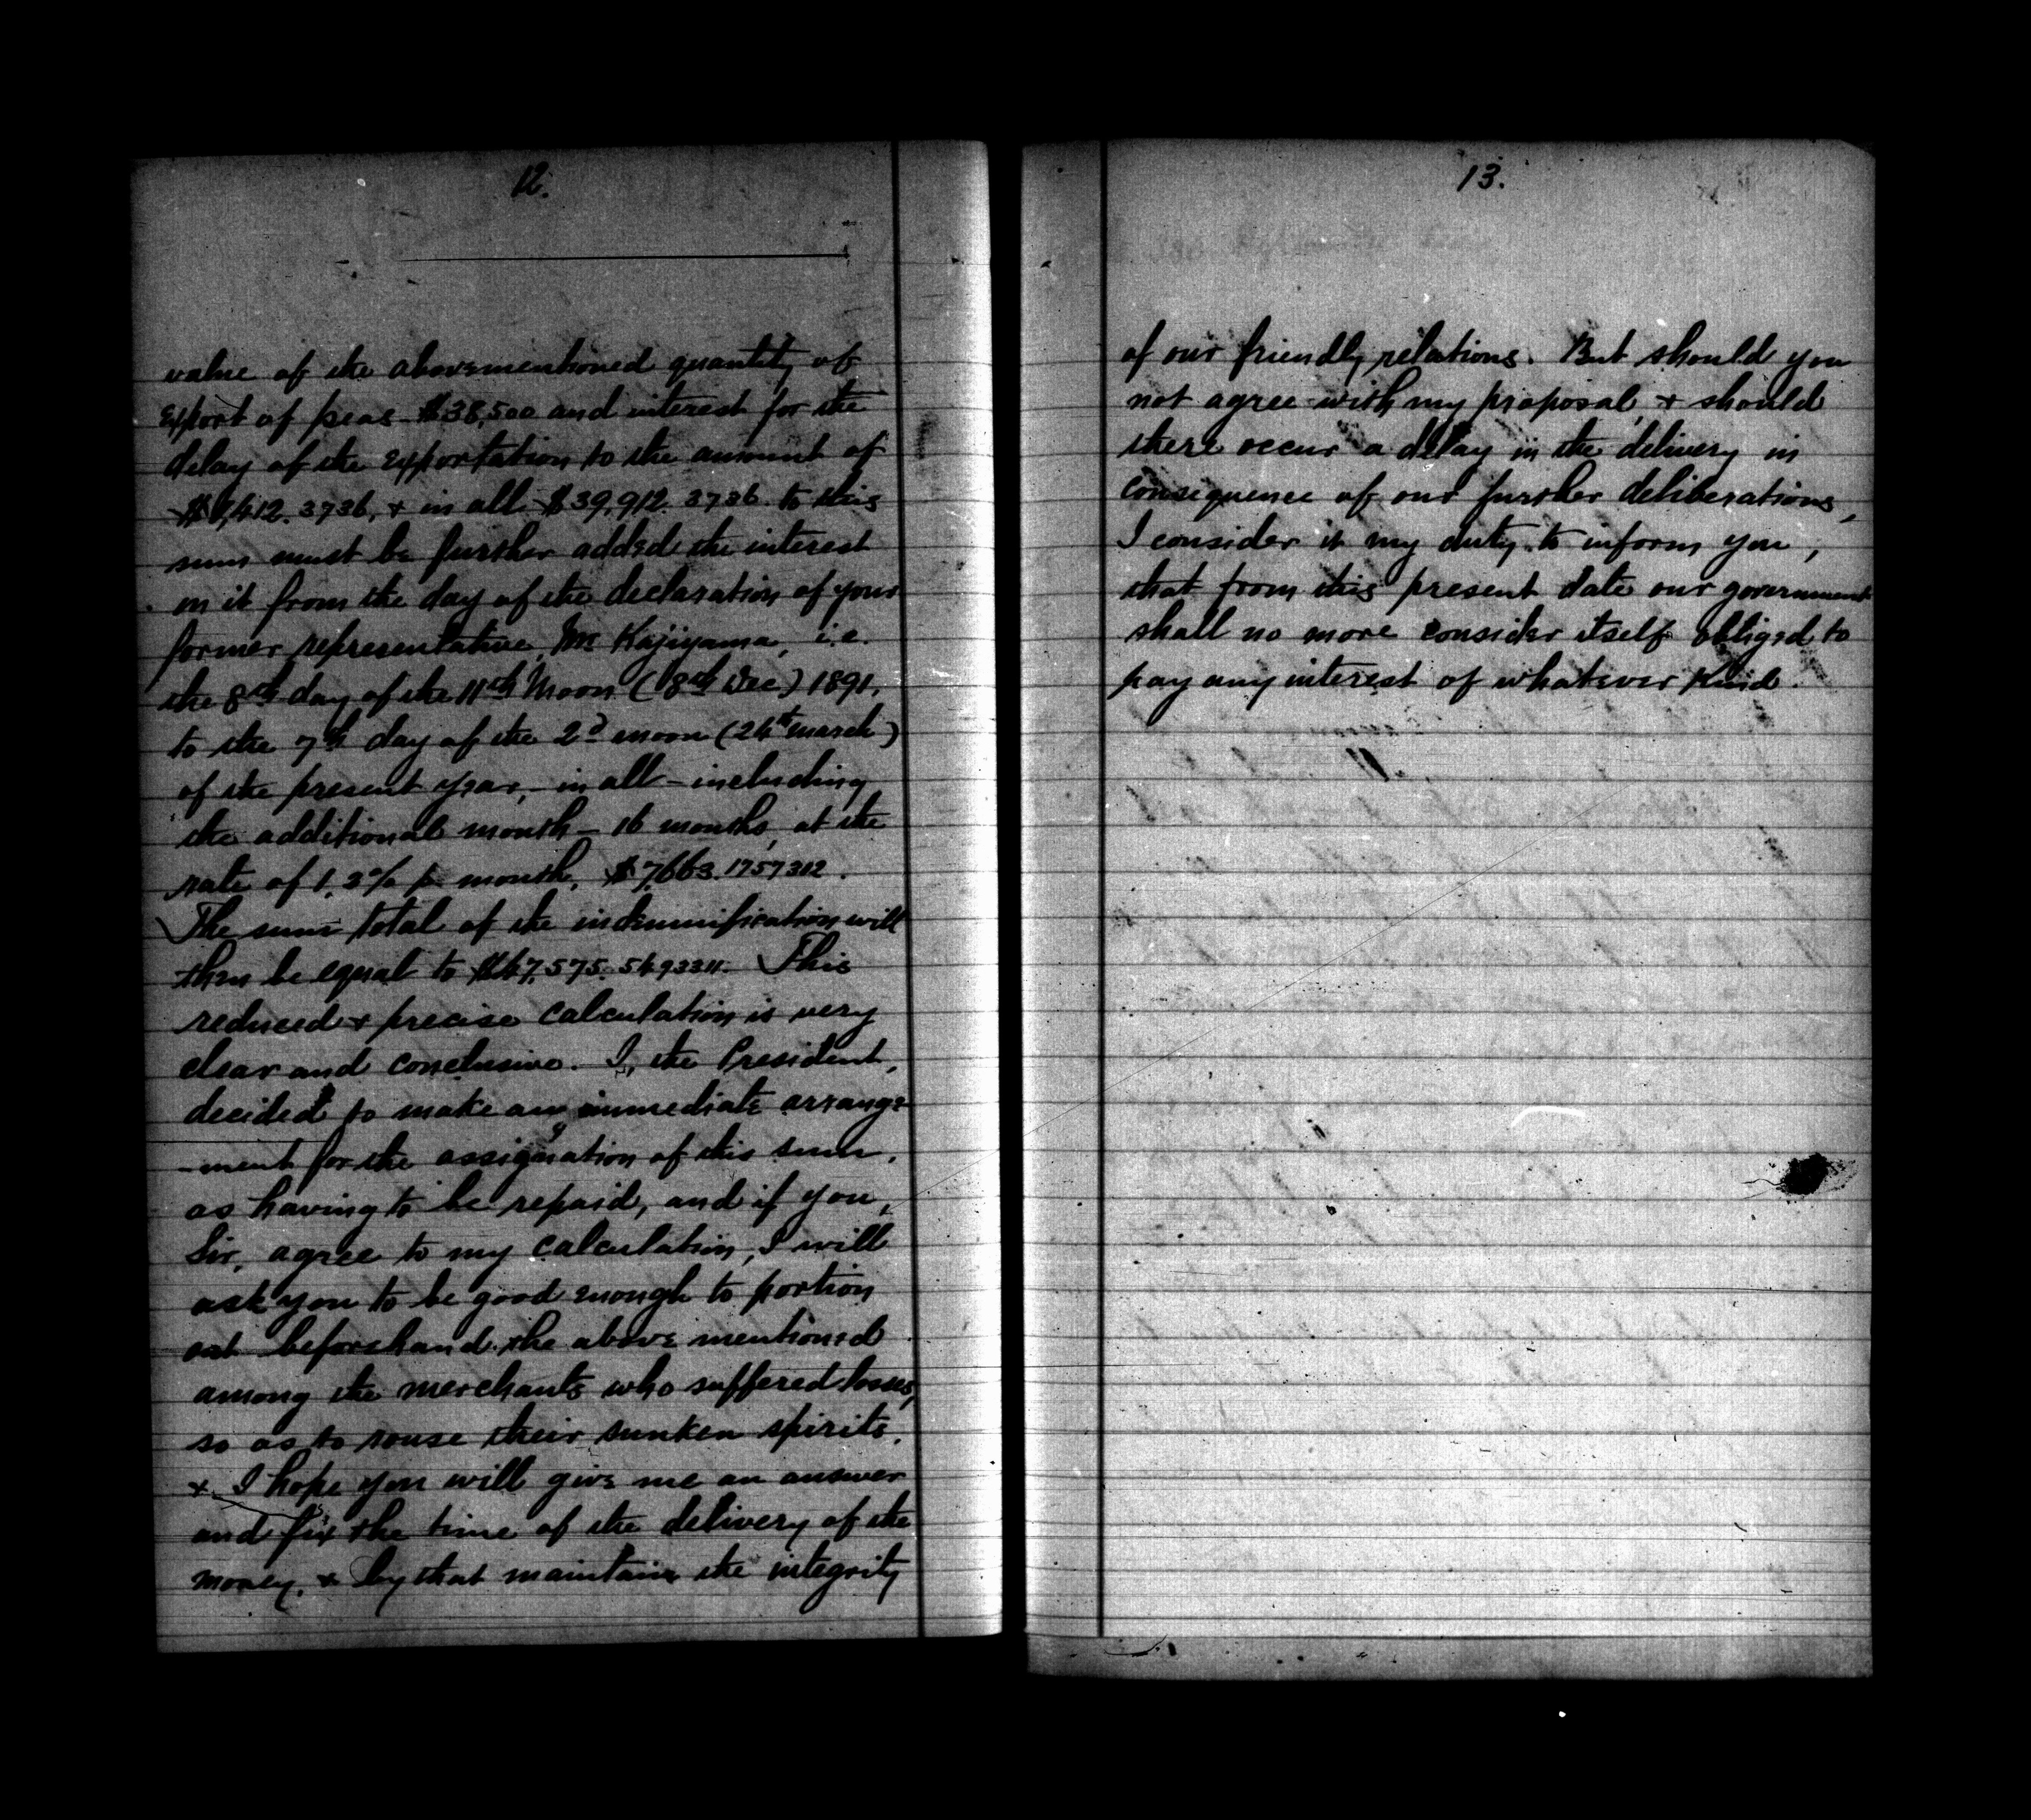 12.
value of the abovementioned quantity of
export of peas $38,500 and interest for the
delay of the exportation to the amount of
$1,412.3736, + in all $39,912.3736. to this
sum must be further added the interest
on it from the day of the declaration of your
former representative, Mr Kajiyama, i.e.
the 8th day of the 11th Moon (8th Dec.) 1891,
to the 7th day of the 2d moon (24th March)
of the present year, - in all - including
the additional month - 16 months, at the
rate of 1.2% p. month, $7,663.1757312.
The sum total of the indemnification will
then be equal to $47,575.5493311. This
reduced + precise calculation is very
clear and conclusive. I, the President,
decided to make an immediate arrange
-ment for the assignation of this sum,
as having to be repaid, and if you,
Sir, agree to my calculation, I will
ask you to be good enough to portion
out beforehand the above mentioned
among the merchants who suffered losses,
so as to rouse their sunken spirits,
+ I hope you will give me an answer
and fix the time of the delivery of the
money, + by that maintain the integrity
13.
of our friendly relations. But should you
not agree with my proposal, + should
there occur a delay in the delivery in
consequence of our further deliberations,
I consider it my duty to inform you,
that from this present date our government
shall no more consider itself obliged to
pay any interest of whatever kind.